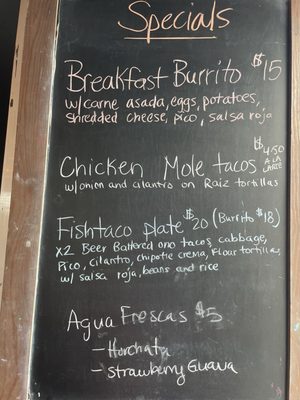 Specials
Breakfast Burrito $15
w/carne asada, eggs, potatoes,
shredded cheese, pico, salsa roja
Chicken Mole tacos $4.50
A LA CARTE
w/onion and cilantro on Raiz tortillas
Fishtaco plate $20 (Burrito $18)
x2 Beer Battered ono tacos, cabbage,
Pico, Cilantro, chipotle crema, Flour tortillas,
w/ salsa roja, beans and rice
Agua Frescas $5
- Horchata
- Strawberry Guava